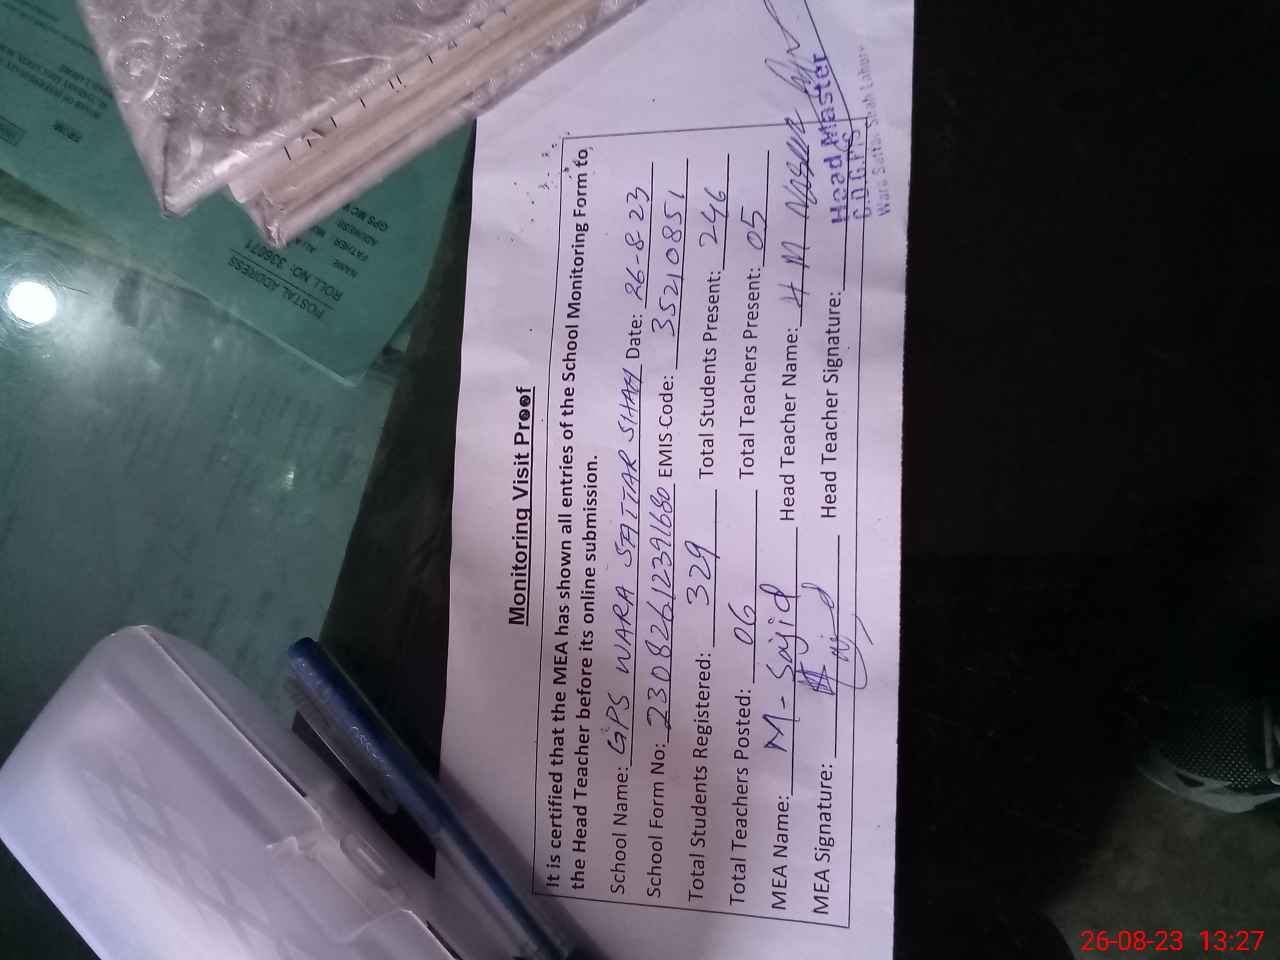 Monitoring Visit Proof
It is certified that the MEA has shown all entries of the School Monitoring Form to,
the Head Teacher before its online submission.
School Name: GPS WARA SATTAR SHAH Date: 26-8-23
School Form No: 23082612391680 EMIS Code: 35210851
Total Students Registered: 329 Total Students Present: 246
Total Teachers Posted: 06 Total Teachers Present: 05
MEA Name: M-Sajid Head Teacher Name: H M
MEA Signature: Head Teacher Signature:
Head Master
Wara Sattar Shah Lahore
POSTAL ADDRESS
ROLL NO: 336071
NAME
FATHER
ADDRESS
26-08-23 13:27